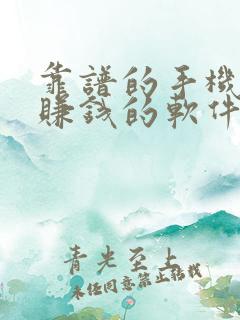 靠譜的手機
賺錢的軟件
青光至上
未经同意禁止转载